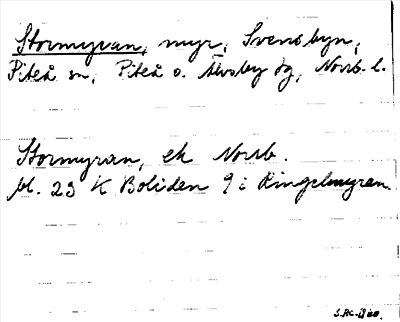 Stormyran, myr, Svensbyn,
Piteå sn, Piteå o. Älvsby dg, Norrb. l.
Stormyran, ek Norrb.
bl. 23 K Boliden 9 i Ringelmyran.